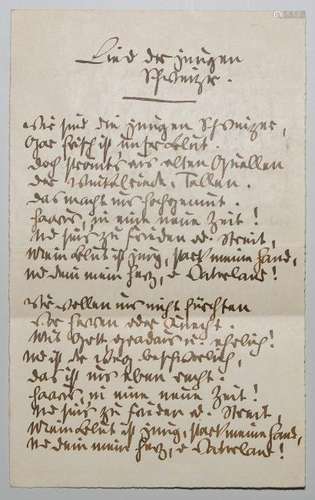 Lied der jungen
Schweizer.
Wir sind die jungen Schweizer,
Gar frisch ist unser Blut.
Doch strömt's aus alten Quellen
Der Tellen.
Das macht uns hochgemut.
in eine neue Zeit!
Und sei's zu Frieden od. Streit,
Mein Blut ist jung, stark meine Hand,
Und dein mein Herz, o Vaterland!
Wir wollen uns nicht fürchten
Vor Herren oder Knecht.
Mit Gott gradaus u. ehrlich!
Und ist der Weg beschwerlich,
Das ist uns eben recht.
in eine neue Zeit!
Und sei's zu Frieden od. Streit,
Mein Blut ist jung, stark meine Hand,
Und dein mein Herz, o Vaterland!